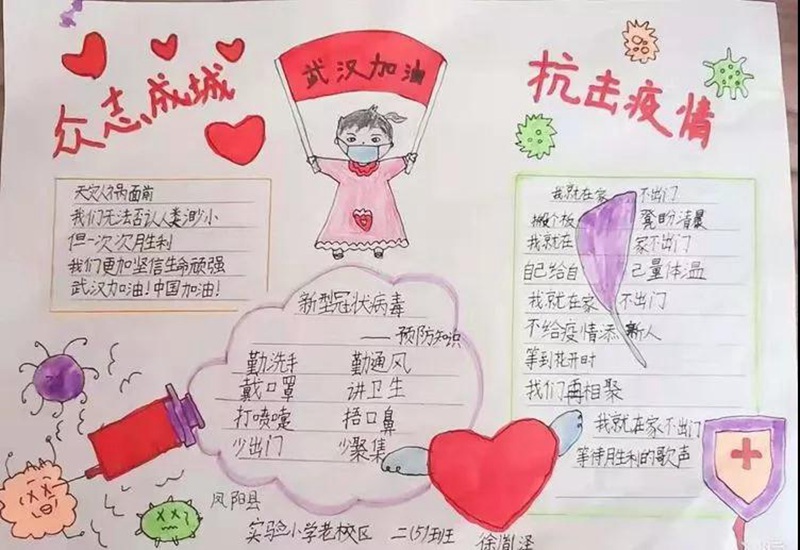 众志成城
武汉加油
抗击疫情
天灾人祸面前
我们无法否认人类渺小
但一次次月生利
我们更加坚信生命顽强
武汉加油!中国加油!
新型冠状病毒
——预防知识
勤洗手 勤通风
戴口罩 讲卫生
打喷嚏 捂口鼻
少出门 少聚集
我就在家 不出门
搬个板 凳盼清晨
我就在 家不出门
自己给自 己量体温
我就在家 不出门
不给疫情添 新人
等到花开时
我们再相聚
我就在家不出门
等待胜利的歌声
凤阳县
实验小学老校区 二(5)班
徐胤泽